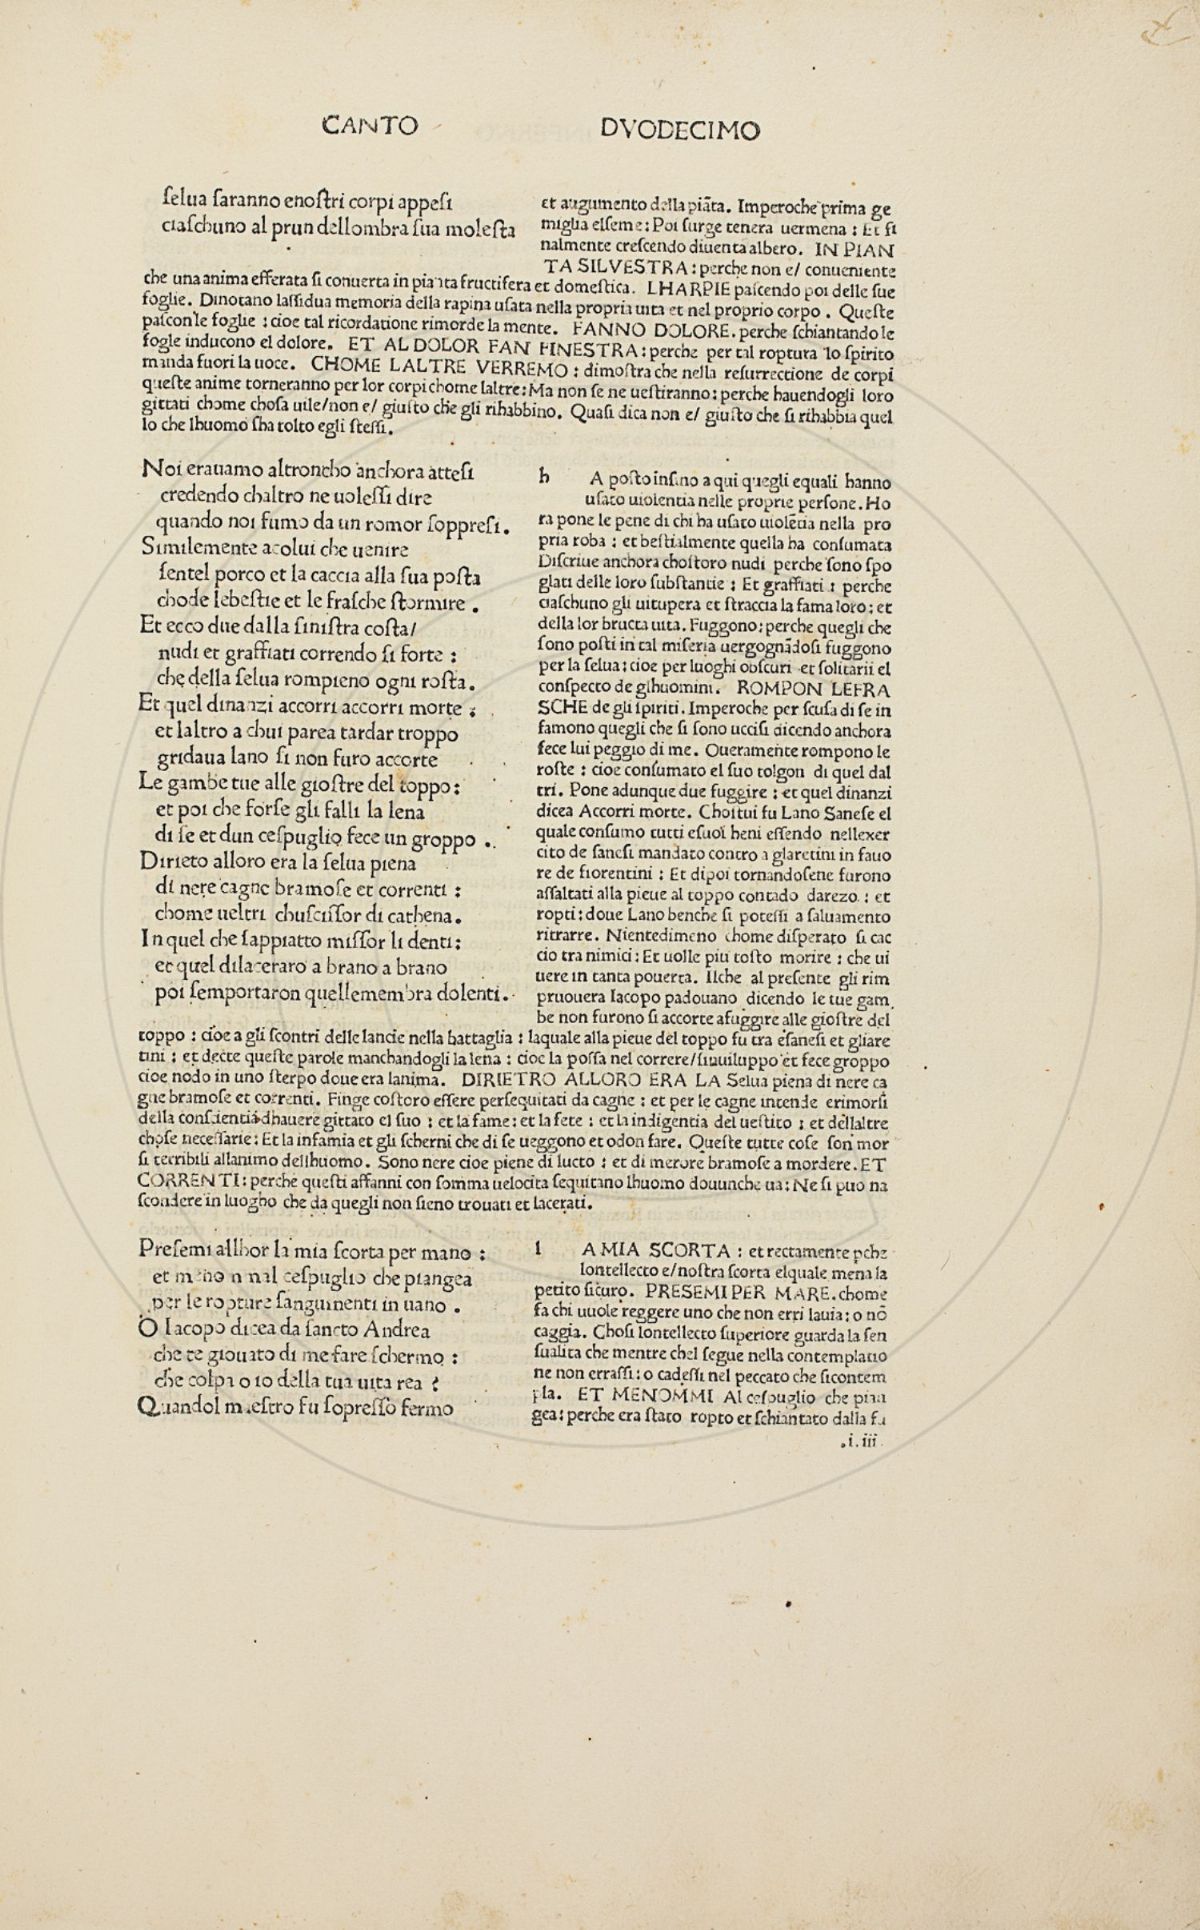 CANTO DVODECIMO
ſelua ſaranno enoſtri corpi appeſi
ciaſchuno al prun dellombra ſua moleſta
et augumento della piāta. Imperoche prima ge
miglia elſeme: Poi ſurge tenera uermena : Et fi
nalmente creſcendo diuenta albero. IN PIAN
TA SILVESTRA: perche non e/ conueniente
che una anima efferata ſi conuerta in pianta fructifera et domeſtica. LHARPIE paſcendo poi delle ſue
foglie. Dinotano laſſidua memoria della rapina uſata nella propria uita et nel proprio corpo . Queſte
paſcon le foglie : cioe tal ricordatione rimorde la mente. FANNO DOLORE. perche ſchiantando le
fogle inducono el dolore. ET AL DOLOR FAN FINESTRA: perche per tal roptura lo ſpirito
manda fuori la uoce. CHOME LALTRE VERREMO : dimoſtra che nella reſurrectione de corpi
queſte anime torneranno per lor corpi chome laltre: Ma non ſe ne ueſtiranno: perche hauendogli loro
gittati chome choſa uile/non e/ giuſto che gli rihabbino. Quaſi dica non e/ giuſto che ſi rihabbia quel
lo che lhuomo ſha tolto egli ſteſſi.
Noi erauamo altroncho anchora atteſi
credendo chaltro ne uoleſſi dire
quando noi fumo da un romor ſoppreſi.
Similemente acolui che uenire
ſentel porco et la caccia alla ſua poſta
chode lebeſtie et le fraſche ſtormire .
Et ecco due dalla ſiniſtra coſta/
nudi et graffiati correndo ſi forte :
che della ſelua rompieno ogni roſta.
Et quel dinanzi accorri accorri morte :
et laltro a chui parea tardar troppo
gridaua lano ſi non furo accorte
Le gambe tue alle gioſtre del toppo:
et poi che forſe gli falli la lena
di ſe et dun ceſpuglio fece un groppo .
Dirieto alloro era la ſelua piena
di nere cagne bramoſe et correnti :
chome ueltri chuſciſſor di cathena.
In quel che ſappiatto miſſor li denti:
et quel dilaceraro a brano a brano
poi ſemportaron quellemembra dolenti.
h A poſto inſino a qui quegli equali hanno
uſato uiolentia nelle proprie perſone. Ho
ra pone le pene di chi ha uſato uiolētia nella pro
pria roba : et beſtialmente quella ha conſumata
Diſcriue anchora choſtoro nudi perche ſono ſpo
glati delle loro ſubſtantie : Et graffiati : perche
ciaſchuno gli uitupera et ſtraccia la fama loro: et
della lor bructa uita. Fuggono: perche quegli che
ſono poſti in tal miſeria uergognādoſi fuggono
per la ſelua: cioe per luoghi obſcuri et ſolitarii el
conſpecto de glhuomini. ROMPON LEFRA
SCHE de gli ſpiriti. Imperoche per ſcuſa di ſe in
famono quegli che ſi ſono ucciſi dicendo anchora
fece lui peggio di me. Oueramente rompono le
roſte : cioe conſumato el ſuo tolgon di quel dal
tri. Pone adunque due fuggire : et quel dinanzi
dicea Accorri morte. Choſtui fu Lano Saneſe el
quale conſumo tutti eſuoi beni eſſendo nellexer
cito de ſaneſi mandato contro a glaretini in fauo
re de fiorentini : Et dipoi tornandoſene furono
aſſaltati alla pieue al toppo contado darezo : et
ropti: doue Lano benche ſi poteſſi a ſaluamento
ritrarre. Nientedimeno chome diſperato ſi cac
cio tra nimici: Et uolle piu toſto morire : che ui
uere in tanta pouerta. Ilche al preſente gli rim
pruouera Iacopo padouano dicendo le tue gam
be non furono ſi accorte afuggire alle gioſtre del
toppo : cioe a gli ſcontri delle lancie nella battaglia : laquale alla pieue del toppo fu tra eſaneſi et gliare
tini : et decte queſte parole manchandogli la lena : cioe la poſſa nel correre/ſinuiluppo et fece groppo
cioe nodo in uno ſterpo doue era lanima. DIRIETRO ALLORO ERA LA Selua piena di nere ca
gne bramoſe et correnti. Finge coſtoro eſſere perſequitati da cagne : et per le cagne intende erimorſi
della conſcientia dhauere gittato el ſuo : et la fame: et la ſete : et la indigentia del ueſtito : et dellaltre
choſe neceſſarie: Et la infamia et gli ſcherni che di ſe ueggono et odon fare. Queſte tutte coſe ſon mor
ſi terribili allanimo dellhuomo. Sono nere cioe piene di lucto : et di merore bramoſe a mordere. ET
CORRENTI: perche queſti affanni con ſomma uelocita ſequitano lhuomo douunche ua: Ne ſi puo na
ſcondere in luogho che da quegli non ſieno trouati et lacerati.
Preſemi allhor la mia ſcorta per mano :
et meno n nal ceſpuglio che piangea
per le ropture ſanguinenti in uano .
O Iacopo dicea da ſancto Andrea
che te giouato di me fare ſchermo :
che colpa o io della tua uita rea ?
Quandol maeſtro fu ſopreſſo fermo
l A MIA SCORTA : et rectamente pche
lontellecto e/ noſtra ſcorta elquale mena la
petito ſicuro. PRESEMI PER MARE. chome
fa chi uuole reggere uno che non erri lauia: o nō
caggia. Choſi lontellecto ſuperiore guarda la ſen
ſualita che mentre chel ſegue nella contemplatio
ne non erraſſi: o cadeſſi nel peccato che ſicontem
pla. ET MENOMMI Al ceſpuglio che pian
gea: perche era ſtato ropto et ſchiantato dalla fu
.i.iii